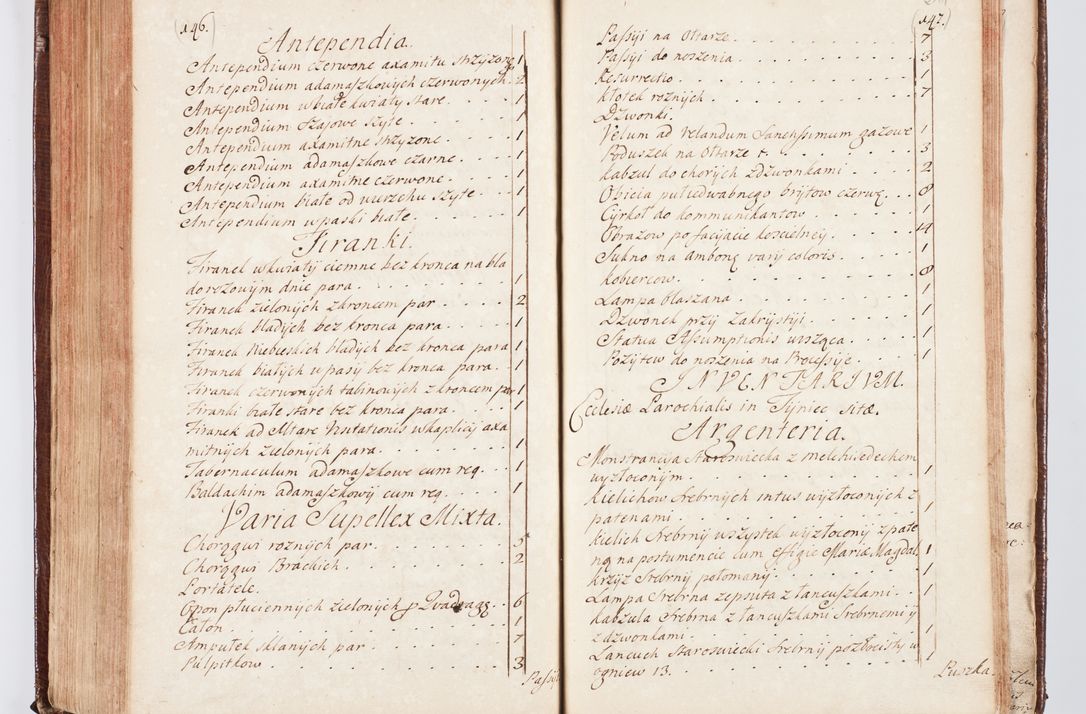 146.
Antependia.
Antependium czerwone axamitu strzyżone 1
Antependium adamaszkowych czerwonych. 2
Antependium w białe kwiaty stare. 1
Antependium szajowe szyte 1
Antependium axamitne strzyżone. 1
Antependium adamaszkowe czarne. 1
Antependium axamitne czerwone. 1
Antependium białe od wierzchu szyte 1
Antependium w paski białe. 1
Firanki.
Firanek w kwiaty ciemne bez kronca na bla
do rezowym dnie para. 1
Firanek zielonych z kroncem par. 2
Firanek bladych bez kronca para. 1
Firanek Niebieskich bladych bez kronca para 1
Firanek białych w pasy bez kronca para. 1
Firanek czerwonych tabinowych z kroncem par 1
Firanki białe stare bez kronca para. 1
Firanek ad Altare w kaplicy axa
mitnych zielonych para. 1
Tabernaculum adamaszkowe cum req. 1
Baldachim adamaszkowy cum req. 1
Varia Supellex Mixta.
Chorągwi roznych par. 5
Chorągwi Brackich. 2
Portatele.
Opon płuciennych zielonych p Quadrag: 6
Caton. 1
Ampułek sklanych par. 7
Pulpitkow. 3
Passyi
147.
Passyi na Ołtarze. 7
Passyi do noszenia. 3
Resurrectio. 1
Kłotek roznych. 7
Dzwonki.
Velum ad Velandum Sanctissimum gazowe 1
Poduszek na Ołtarze 3
Kabzul do chorych z dzwonkami. 2
Obicia pułiedwabnego brytow czerwę. 8
Cyrkoł do kommunikantow. 1
Obrazow po facyacie koscielney. 14
Sukno na ambonę varij coloris. 1
Kobiercow. 8
Lampa blaszana. 1
Dzwonek przy Zakrystyi. 1
Statua Assumptionis wisząca. 1
Pozytew do noszenia na Processye. 1
INVENTARIVM.
Ecclesiæ Parochialis in Tyniec sitæ.
Argenteria.
Monstrancya staroswiecka z melchisedeckem
wyzłoconym. 1
Kielichow srebrnych intus wyzłoconych z
patenami. 1
Kielich srebrny wszystek wyzłocony z pate
ną na postumencie cum effigie Mariæ Magdal. 1
Krzyż srebrny połomany. 1
Lampa srebrna zepsuta z łancuszkami. 1
Kabzula srebrna z łancuszkami srebrnemi y
z dzwonkami. 1
Łancuch staroswiecki srebrny pozłocisty w
ogniew 13. 1
Puszka.